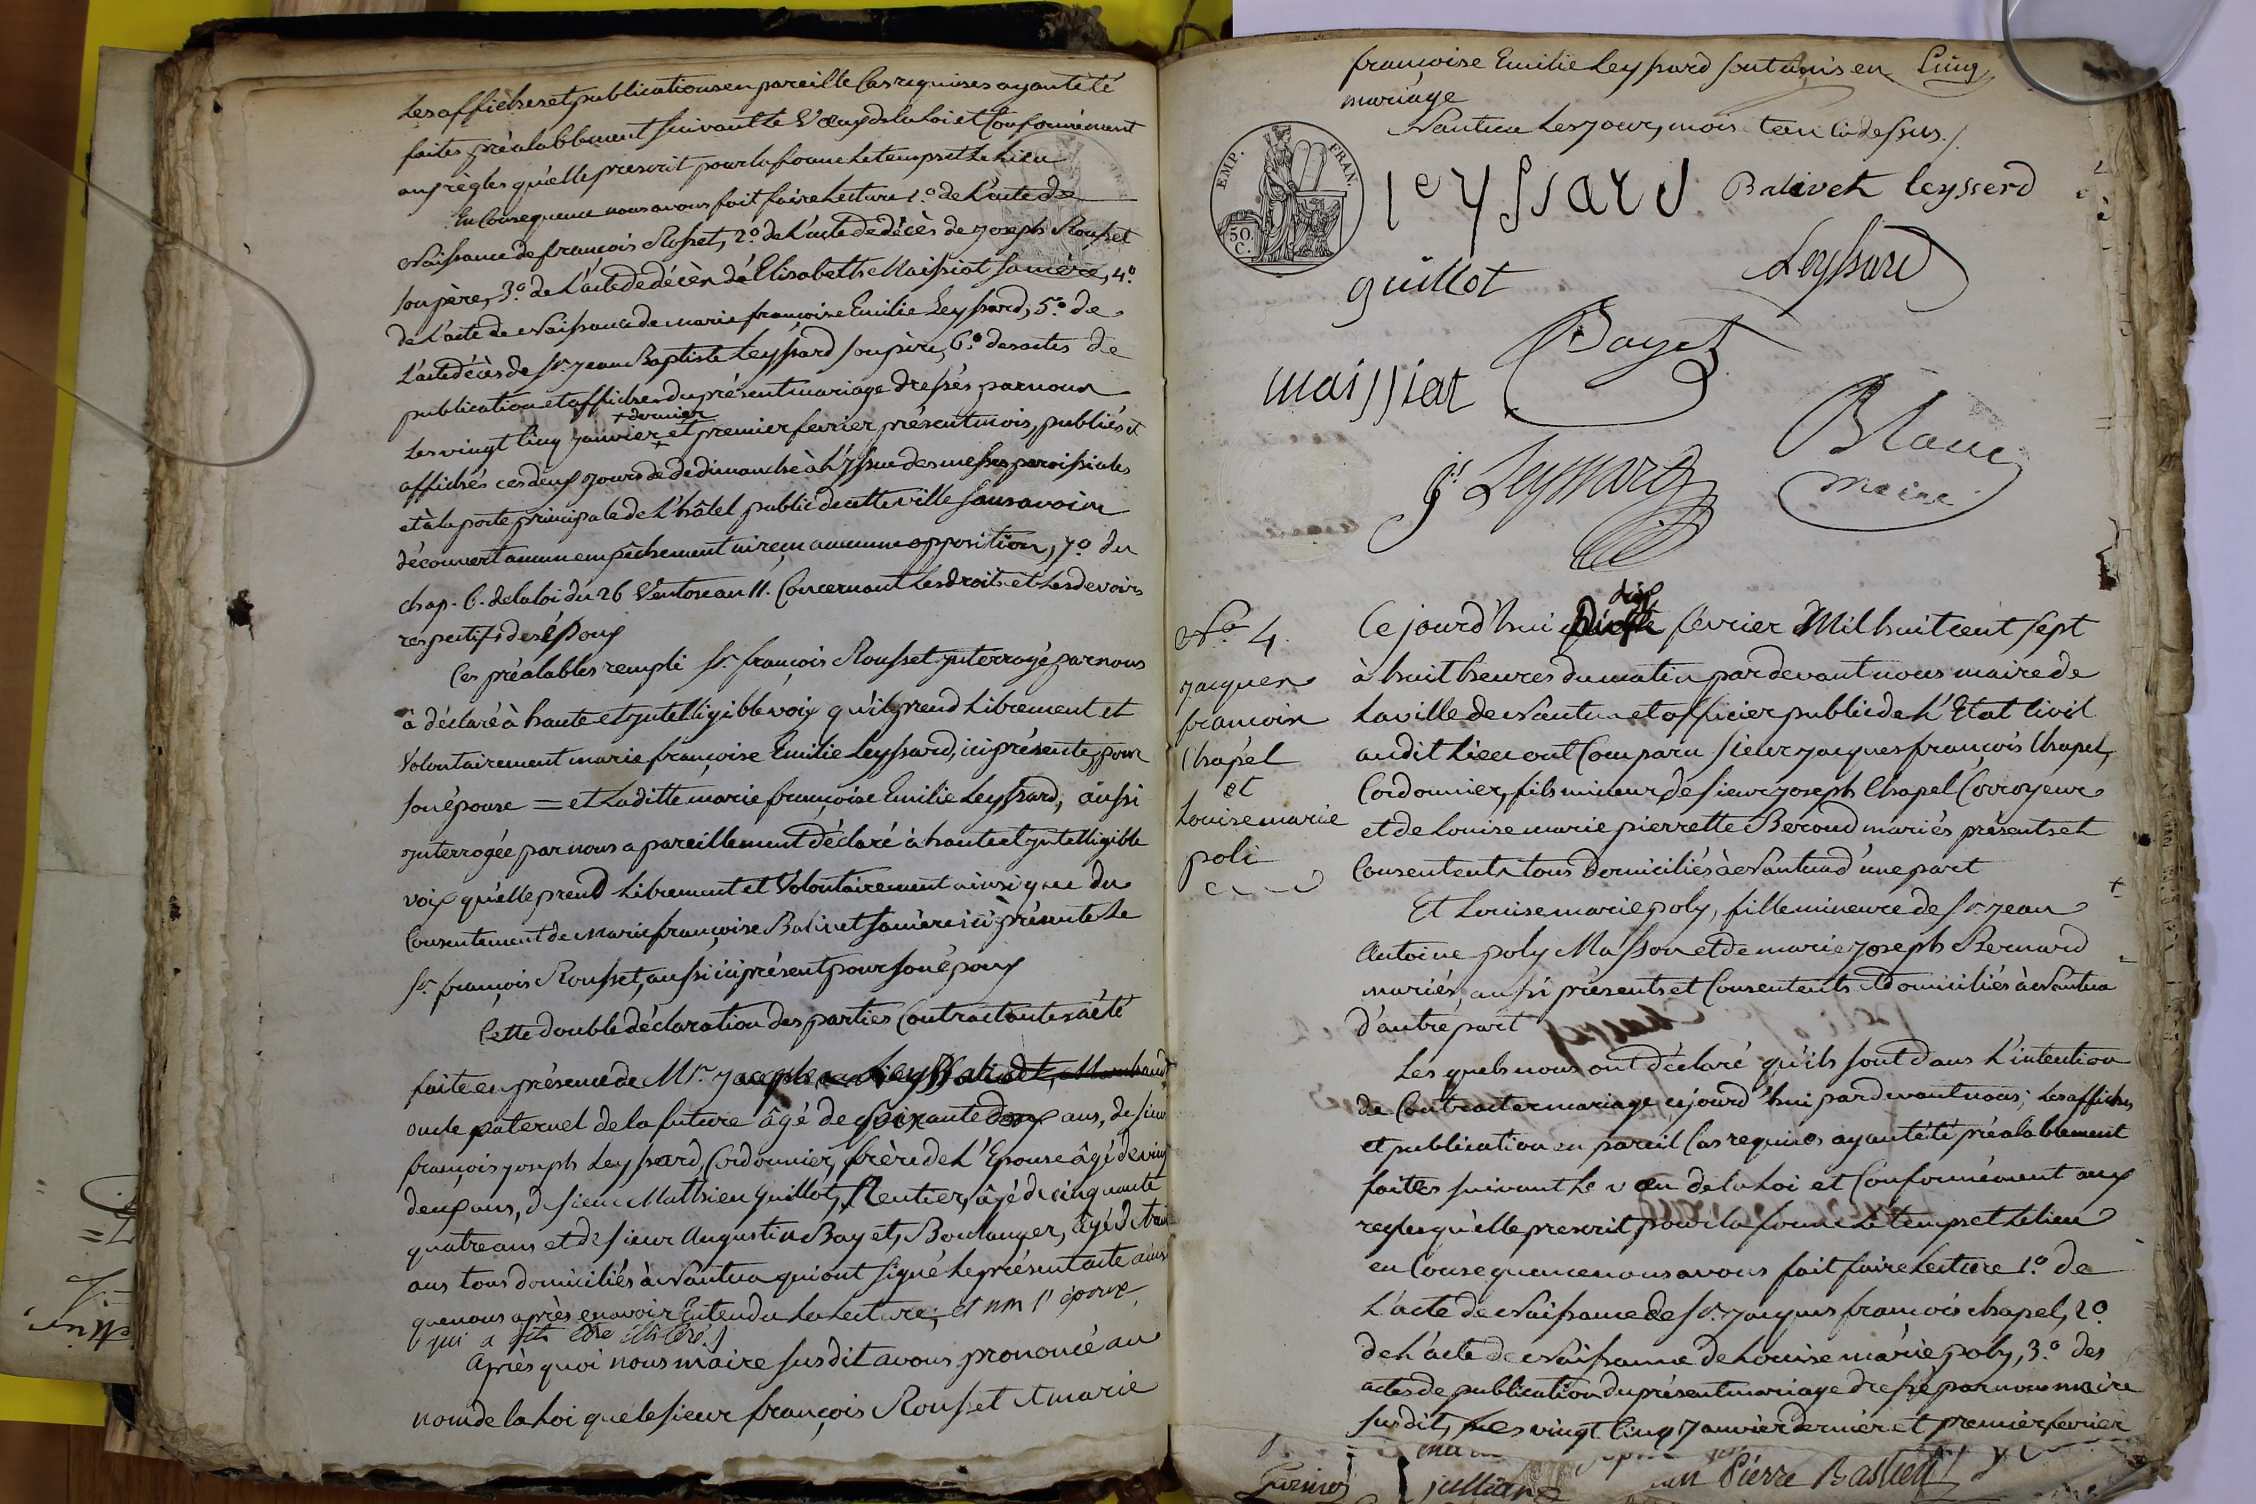 Les affiches et publications en pareille Cas requises ayant été
faites préalablement suivant le Vœux de la Loi et Conformément
aux règles qu'elle prescrit pour la forme Le temps et Le Lieu
En Consequence nous avons fait faire Lecture 1.° de L'acte de
Naissance de françois Rosset, 2.° de L'acte de décès de joseph Rousset
son père, 3.° de L'acte de décès d'Elisabeth Maissiat sa mère, 4.°
de L'acte de Naissance de marie françoise Emilie Leyssard, 5.° de
L'acte décès de Sr. jean Baptiste Leyssard son père, 6.° des actes de
publication et affiches du présent mariage dressés par nous
+ dernier
Les vingt Cinq janvier + et premier fevrier présent mois, publiés et
affichés ces deux jours de de dimanche à L'yssue des messes paroissiales
et à la porte principale de L'hôtel public de cette ville sans avoir
découvert aucun empêchement ni reçu aucune opposition, 7.° du
chap. 6. de la loi du 26 Ventose an 11. Concernant Les droits et Les devoirs
respectifs des époux
Ces préalables rempli Sr. françois Rousset ynterrogé par nous
à déclaré à haute et yntelligible voix qu'il prend Librement et
Volontairement marie françoise Emilie Leyssard, ici présente, pour
son épouse = et Laditte marie françoise Emilie Leyssard, aussi
ynterrogée par nous a pareillement déclaré à haute et yntelligible
voix qu'elle prend Librement et Volontairement ainsi que du
Consentement de Marie françoise Balivet sa mère ici présente Le
Sr. françois Rousset, aussi ici présent pour son époux
Cette double déclaration des parties Contractantes a été
faite en présence de Mr.
oncle paternel de la future âgé de soixante deux ans, de sieur
françois joseph Leyssard, Cordonnier, frère de L'Epouse âgé de vingt
deux ans, de sieur Mathieu guillot, Rentier, âgé de cinquante
quatre ans et de sieur Augustin Bayet, Boulanger, âgé de
ans tous domiciliés à Nantua qui ont signé Le présent acte ainsi
que nous après en avoir Entendu La Lecture; et non l'époux
qui a dit être illitéré.
Après quoi nous maire susdit avons prononcé au
nom de la Loi que le sieur françois Rousset et marie
françoise Emilie Leyssard sont unis en Cinq
mariage
Nantua Les jour, mois et an ci dessus.
EMP. FRAN.
50. C.
leyssard Balivet leysserd
guillot Leyssard
Bayet
maissiat
Blanc
maire
Leyssard
N.° 4.
jacques
françois
Chapel
et
Louise marie
poli
dix
Ce jourd'hui février Mil huit cent sept
à huit heures du matin par devant nous maire de
La ville de Nantua et officier public de L'Etat Civil
audit Lieu ont Comparu sieur jacques françois Chapel,
Cordonnier, fils mineur de sieur joseph Chapel Corroyeur
et de Louise marie pierrette Beroud mariés présents et
Consentents tous Domiciliés à Nantua d'une part
Et Louise marie poly, fille mineure de Sr. jean
Antoine poly Masson et de marie joseph Bernard
mariés, aussi présents et Consentents et domiciliés à Nantua
d'autre part
Les quels nous ont déclaré qu'ils sont dans L'intention
de Contracter mariage cejourd'hui par devant nous; Les affiches
et publication en pareil Cas requises ayant été préalablement
faites suivant Le vœu de la Loi et Conformément aux
regles qu'elle prescrit pour la forme Le temps et Le lieu
en Consequence nous avons fait faire Lecture 1.° de
L'acte de Naissance de Sr. jacques françois chapel, 2.°
de L'acte de Naissance de Louise marie poly, 3.° des
actes de publication du présent mariage dressé par nous maire
susdit, Les vingt Cinq janvier dernier et premier fevrier
Pierre Bastien